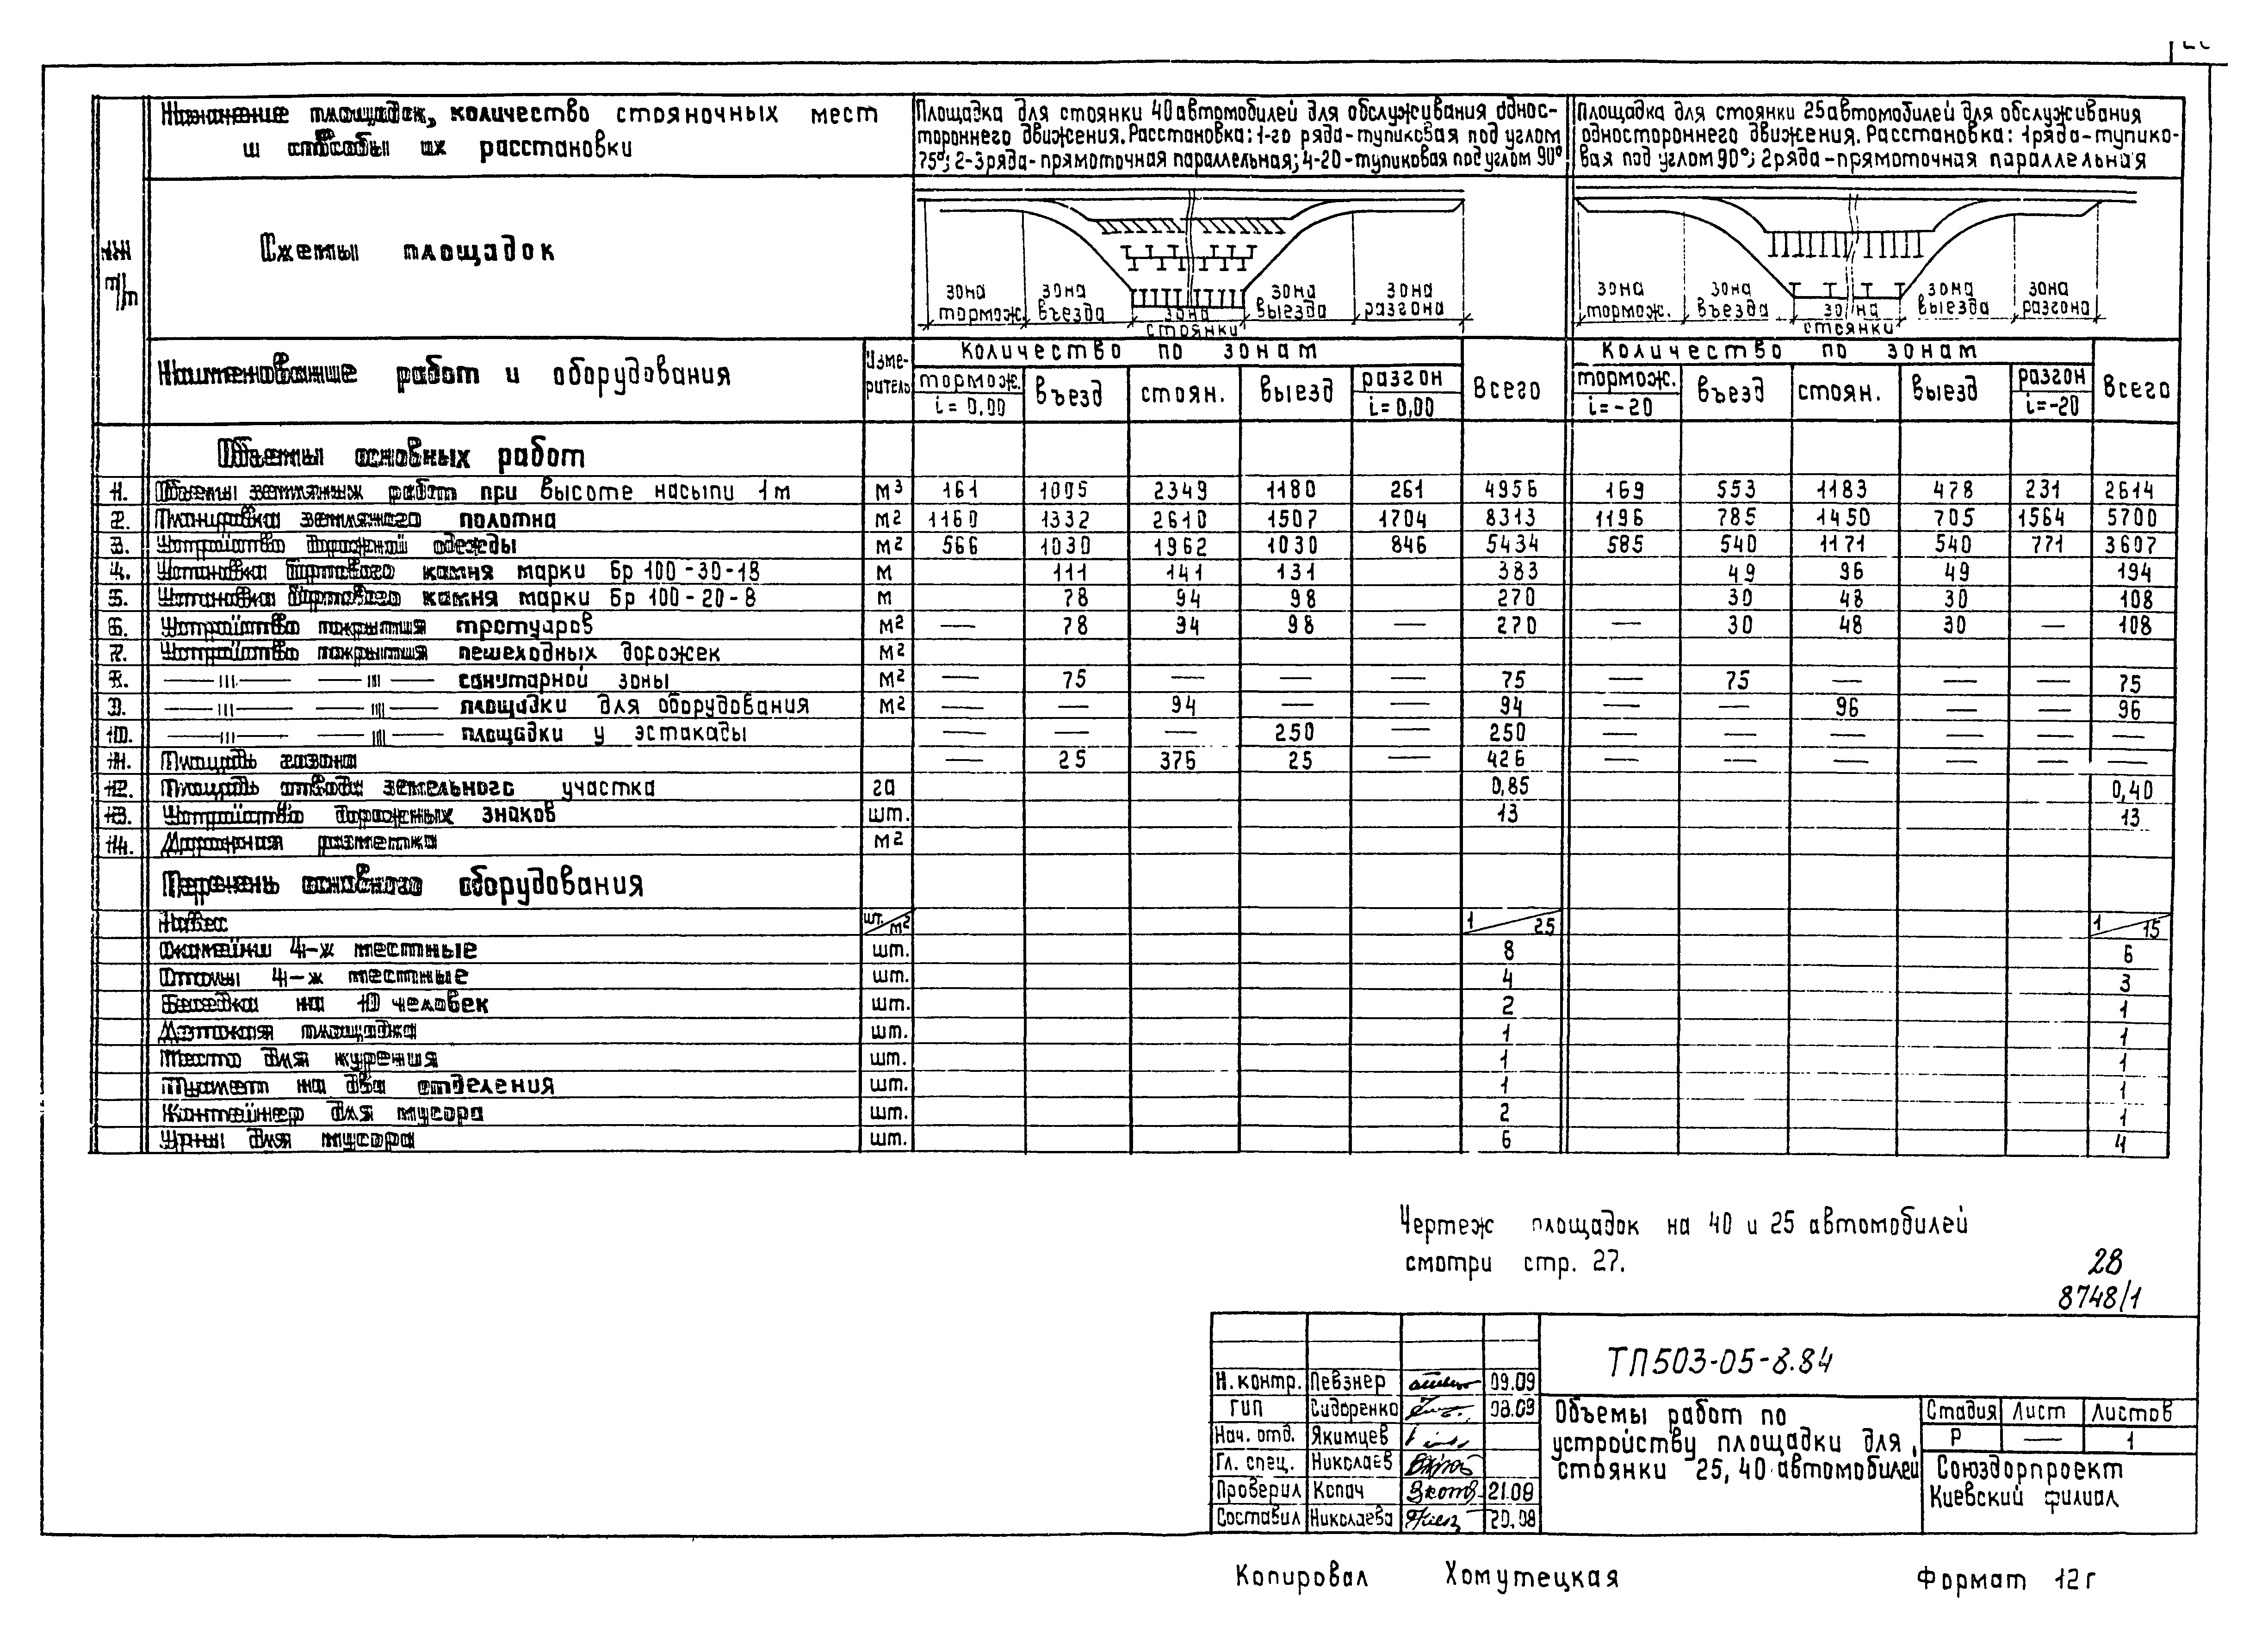 Назначение площадок, количество стояночных мест
и способы их расстановки
Площадка для стоянки 40 автомобилей для обслуживания одно-
стороннего движения. Расстановка: 1-го ряда-тупиковая под углом
75°; 2-3 ряда-прямоточная параллельная; 4-20-тупиковая под углом 90°
Площадка для стоянки 25 автомобилей для обслуживания
одностороннего движения. Расстановка: 1 ряда-тупико-
вая под углом 90°; 2 ряда-прямоточная параллельная
п/п
Схемы площадок
зона тормож. зона въезда зона стоянки зона выезда зона разгона
зона тормож. зона въезда зона стоянки зона выезда зона разгона
Наименование работ и оборудования
Изме-
ритель
Количество по зонам
тормож. i = 0,00 въезд стоян. выезд разгон i = 0,00 всего
Количество по зонам
тормож. i = -20 въезд стоян. выезд разгон i = -20 всего
Объемы основных работ
1. Объемы земляных работ при высоте насыпи 1м м³ 161 1005 2349 1180 261 4956 169 553 1183 478 231 2614
2. Планировка земляного полотна м² 1160 1332 2610 1507 1704 8313 1196 785 1450 705 1564 5700
3. Устройство дорожной одежды м² 566 1030 1962 1030 846 5434 585 540 1171 540 771 3607
4. Установка бортового камня марки Бр 100-30-18 м 111 141 131 383 49 96 49 194
5. Установка бортового камня марки Бр 100-20-8 м 78 94 98 270 30 48 30 108
6. Устройство покрытия тротуаров м² — 78 94 98 — 270 — 30 48 30 — 108
7. Устройство покрытия пешеходных дорожек м²
8. —ııı— —ııı— санитарной зоны м² — 75 — — — 75 — 75 — — — 75
9. —ııı— —ııı— площадки для оборудования м² — — 94 — — 94 — — 96 — — 96
10. —ııı— —ııı— площадки у эстакады — — — 250 — 250 — — — — — —
11. Площадь газона — 25 376 25 — 426 — — — — — —
12. Площадь отвода земельного участка га 0,85 0,40
13. Устройство дорожных знаков шт. 13 13
14. Дорожная разметка м²
Перечень основного оборудования
Навес шт./м² 1/25 1/15
Скамейки 4-х местные шт. 8 6
Столы 4-х местные шт. 4 3
Беседка на 10 человек шт. 2 1
Детская площадка шт. 1 1
Место для курения шт. 1 1
Туалет на два отделения шт. 1 1
Контейнер для мусора шт. 2 1
Урны для мусора шт. 6 4
Чертеж площадок на 40 и 25 автомобилей
смотри стр. 27.
28
8748/1
ТП503-05-8.84
Н. контр. Певзнер 09.09
ГИП Сидоренко 08.09
Нач. отд. Якимцев
Гл. спец. Николаев
Проверил Копач 21.08
Составил Николаева 20.08
Объемы работ по
устройству площадки для
стоянки 25, 40 автомобилей
Стадия Лист Листов
Р — 1
Союздорпроект
Киевский филиал
Копировал Хомутецкая Формат 12г